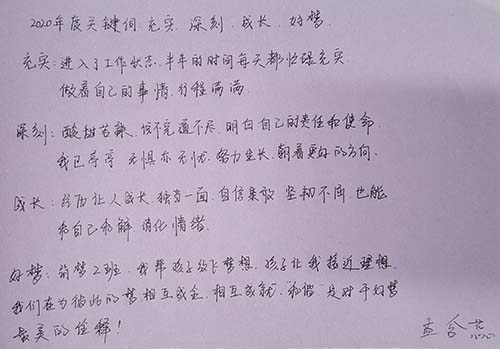 2020年度关键词：充实、深刻、成长、好梦.
充实：进入了工作状态，半年的时间每天都忙碌充实
做着自己的事情，行程满满.
深刻：酸甜苦辣，说不完道不尽，明白自己的责任和使命.
我已亭亭，无惧亦无忧，努力生长，朝着更好的方向.
成长：经历让人成长，独当一面，自信果敢，坚韧不屈，也能
和自己和解，消化情绪.
好梦：筑梦2班，我帮孩子放飞梦想，孩子让我接近理想.
我们在为彼此的梦相互成全，相互成就，“和谐”是对于好梦
最美的诠释！
孟含蕊